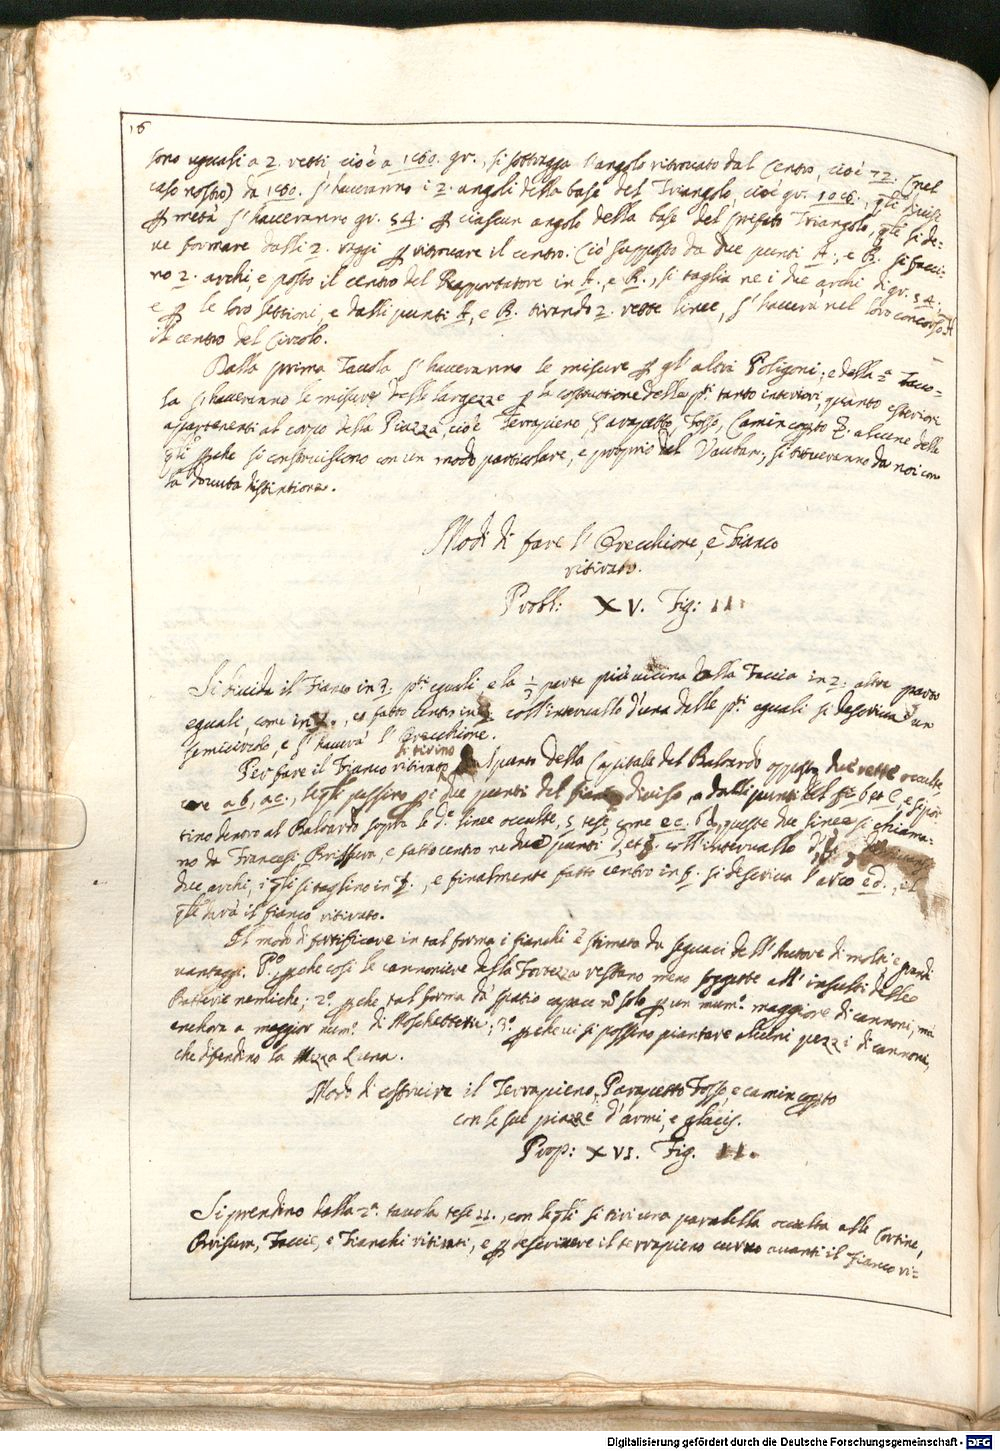 16
sono uguali a 2. retti cioè a 180. gr., si sottragga l'angolo ritrovato dal Centro, cioè 72. (nel
caso nostro) da 180. s'haveranno i 2. angoli della base del Triangolo, cioè gr. 108., qli divisi
ꝑ metà s'haveranno gr. 54. ꝑ ciascun angolo della base del Triangolo, qli si de=
ve formare dalli 2. raggi ꝑ ritrovare il centro. Ciò supposto da due punti A., e B. si facci=
no 2. archi, e posto il centro del Rapportatore in A. e B., si taglia ne i due archi di gr. 54.
e ꝑ le loro settioni, e dalli punti A, e B. tirando 2. rette linee, s'haverà nel loro concorso
il centro del Circolo.
Dalla prima Tavola s'haveranno le misure ꝑ gl'altri Poligoni; e della 2.a Tavo=
la s'haveranno le misure delle largezze ꝑ la costruttione delle pti tanto interiori, quanto esteriori
appartenenti al corpo della Piazza, cioè Terrapieno, Parapetto, Fosso, Camin coperto &. alcune delle
qli ꝑche si construiscono con un modo particolare, e proprio del Vauban, si troveranno da noi con
la dovuta distintione.
Modi di fare l'Orecchione, e Fianco
ritirato.
Probl: XV. Fig: 11.
Si divida il Fianco in 3. pti eguali e la 1/3 parte più vicina dalla Faccia in 2. altre parti
eguali, come in, e fatto centro in coll'intervallo d'una delle pti eguali si descriva un
semicircolo, e s'haverà l'Orecchione.
si tirino
Per fare il Fianco ritirato dal punto della Capitale del Baloardo opposto due rette occulte,
come ab, ac., leqli passino ꝑ i due punti del fianco diviso, e dalli punti b et c, e si por=
tino dentro al Baloardo sopra le de linee occulte, 5 tese, come ec. bd, queste due linee si chiama=
no da Francesi Brissura, e fatto centro ne due punti d, et coll'intervallo
due archi, i qli si taglino in f., e finalmente fatto centro in f. si descriva l'arco ed., il
qle darà il fianco ritirato.
Il modo di fortificare in tal forma i fianchi è stimato da seguaci dell'Autore di molti, e grandi
vantaggi. P.o ꝑche così le cannoniere della Fortezza restano meno soggette all'insulti delle
Batterie nemiche; 2.o ꝑche tal forma dà spatio capace nõ solo ꝑ un num.o maggiore di cannoni, mà
anchora a maggior num.o di Moschetteria; 3.o ꝑche vi si possino piantare alcuni pezzi di cannoni,
che difendino la Mezza Luna.
Modo di costruire il Terrapieno, Parapetto Fosso, e camin copto
con le sue piazze d'armi, e glacis.
Prop: XVI. Fig. 11.
Si prendino dalla 2.a tavola tese 11., con leqli si tiri una paralella occulta alle Cortine,
Brisura, Faccie, e Fianchi ritirati, e ꝑ descrivere il terrapieno curvo avanti il fianco ri=
Digitalisierung gefördert durch die Deutsche Forschungsgemeinschaft - DFG